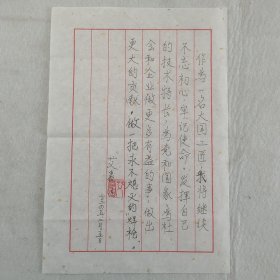 作为一名大国工匠,我将继续
不忘初心,牢记使命,发挥自己
的技术特长,为党和国家为社
会和企业做更多有益的事,做出
更大的贡献,做一把永不熄灭的"焊枪"。
艾爱国